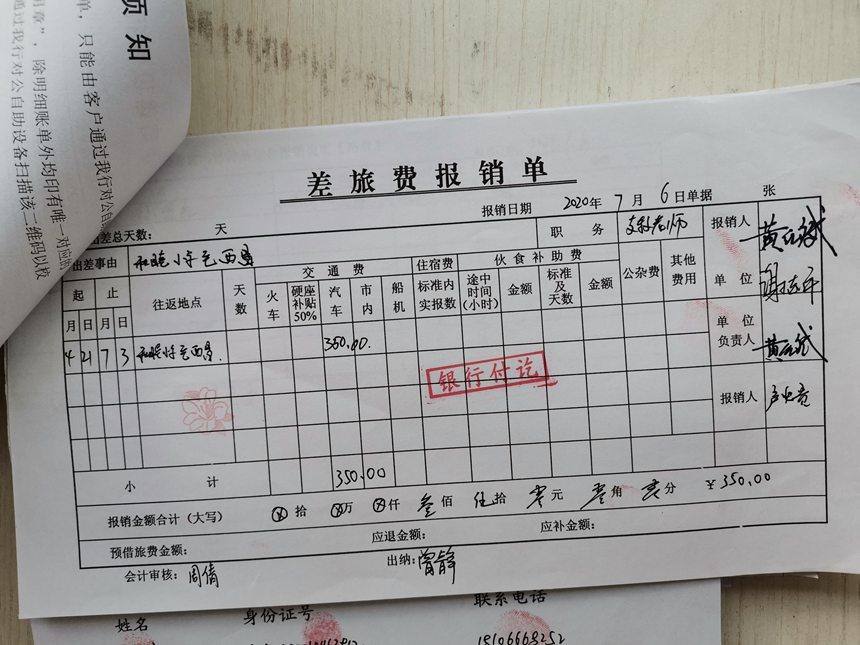 须知
单，只能由客户通过我行对公自
用章”，除明细账单外均印有唯一对应的
通过我行对公自助设备扫描该二维码以校
差旅费报销单
报销日期 2020年 7月 6日单据 张
出差总天数： 天 职务 支教老师 报销人
出差事由 小学 西昌 交通费 住宿费 伙食补助费 公杂费 其他费用 单位
起 止 往返地点 天数 火车 硬座补贴50% 汽车 市内 船机 标准内实报数 途中时间(小时) 金额 标准及天数 金额
月 日 月 日
单位负责人
4 21 7 3 西昌 350.00
银行付讫
报销人
小计 350.00
报销金额合计（大写） ⊗拾 ⊗万 ⊗仟 叁佰 伍拾 零元 零角 零分 ￥350.00
预借旅费金额： 应退金额： 应补金额：
会计审核：周倩 出纳：曾静
姓名 身份证号 联系电话